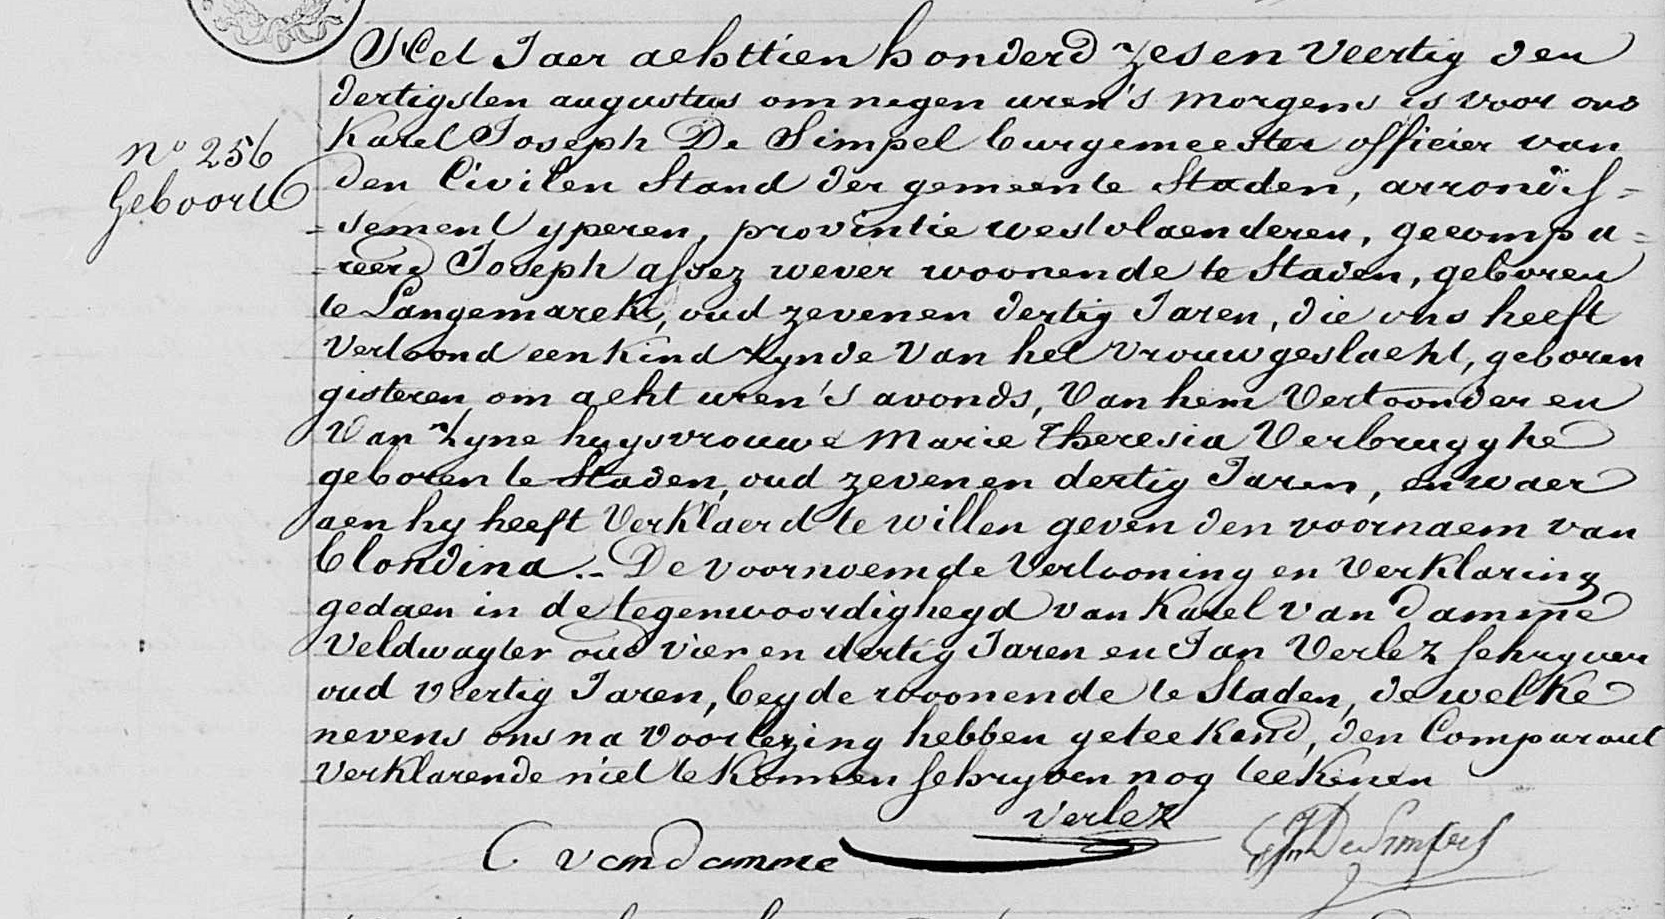 Het Jaer achttien honderd zes en veertig den
dertigsten augustus om negen uren 's morgens is voor ons
Karel Joseph De Simpel burgemeester officier van
n° 256
Geboorte
den Civilen Stand der gemeente Staden, arrondis=
=sement yperen, provintie westvlaenderen, gecompa=
=reerd Joseph assez wever woonende te Staden, geboren
te Langemarck, oud zeven en dertig Jaren, die ons heeft
Vertoond een Kind zynde Van het vrouwgeslacht, geboren
gisteren om acht uren 's avonds, Van hem Vertoonder en
Van zyne huysvrouwe Marie Theresia Verbrugghe
geboren te Staden, oud zeven en dertig Jaren, en waer
aen hy heeft Verklaerd te willen geven den voornaem van
Clondina. _ De voornoemde Vertooning en Verklaring
gedaen in de tegenwoordigheyd van Karel Van damme
Veldwagter oud vier en dertig Jaren en Jan Verlez schryver
oud veertig Jaren, beyde woonende te Staden, de welke
nevens ons na Voorlezing hebben geteekend, den Comparant
Verklarende niet te konnen schryven nog teekenen
Verlez
C vandamme
De Simpel